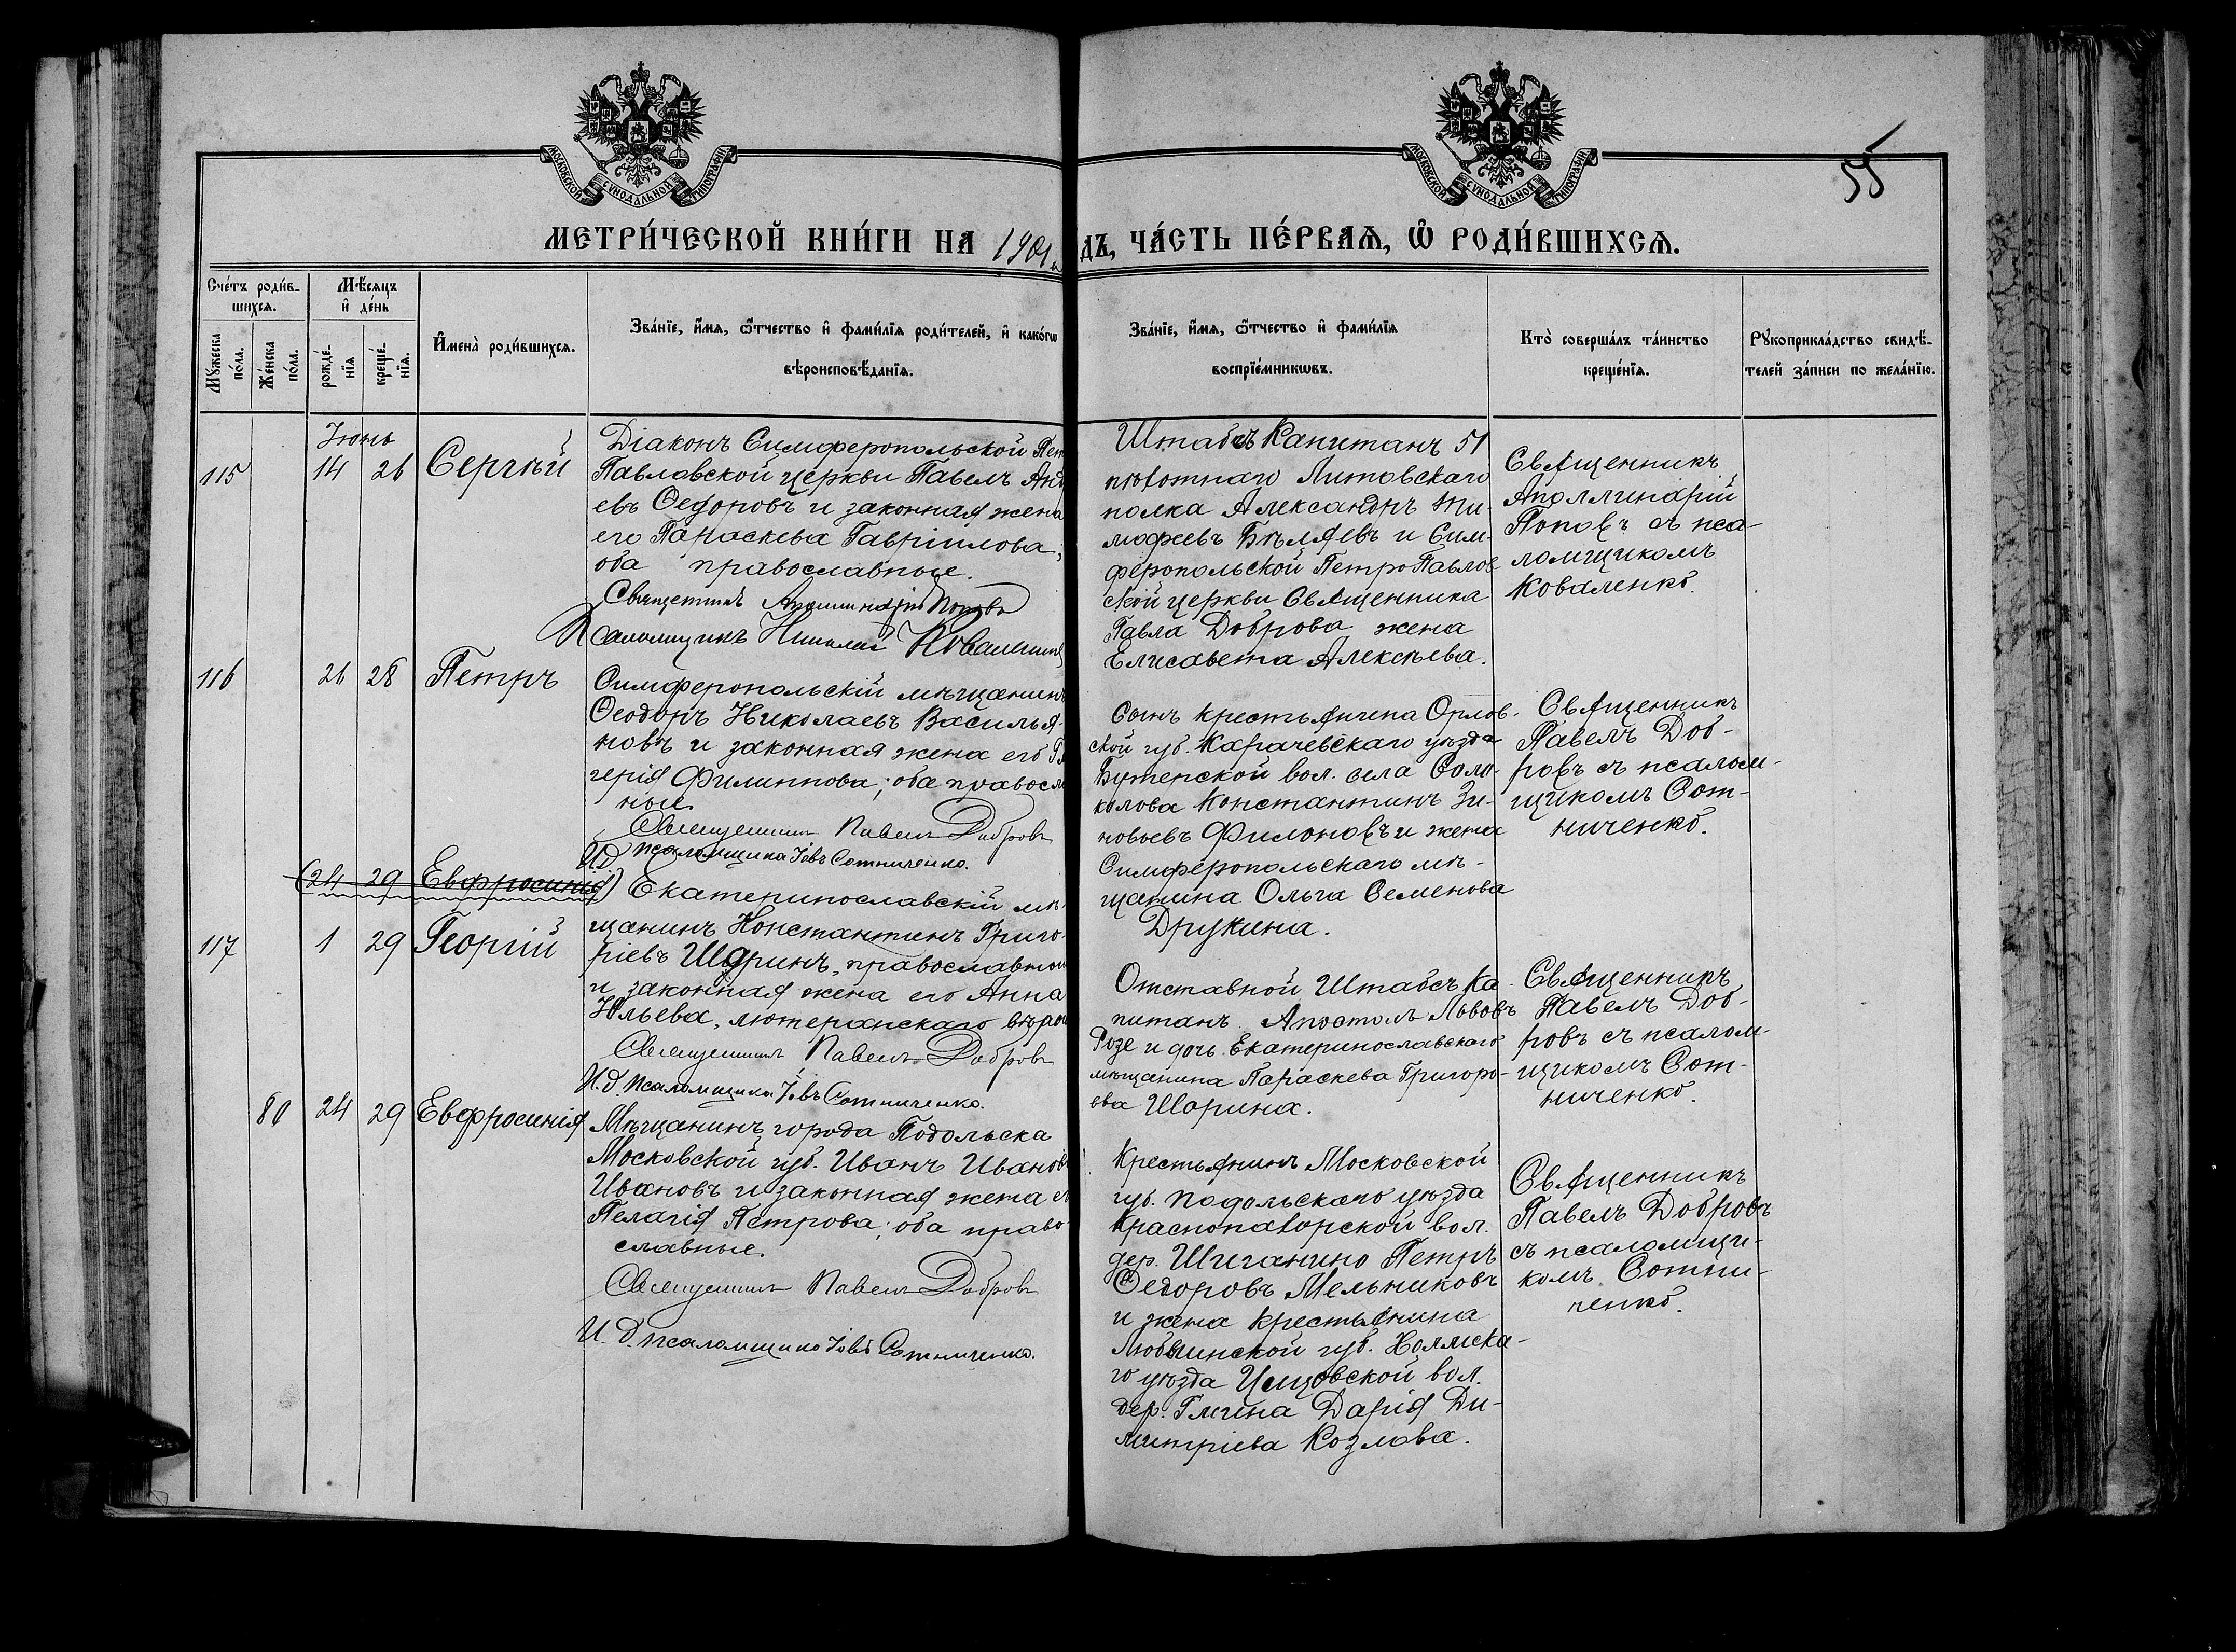 МОСКОВСКОЙ СУНОДАЛЬНОЙ ТИПОГРАФІИ
МОСКОВСКОЙ СУНОДАЛЬНОЙ ТИПОГРАФІИ
55
МЕТРИ́ЧЕСКОЙ КНИ́ГИ НА 1901
ДЪ, ЧА́СТЬ ПЕ́РВАѦ, Ѡ РОДИ́ВШИХСѦ.
Сче́тъ роди́в-
шихсѧ.
Мꙋжеска
по́ла.
Же́нска
по́ла.
Мѣ́сѧцъ
и҆ де́нь
рожде́-
нїѧ
креще́-
нїѧ.
И҆мена̀ роди́вшихсѧ.
Зва́нїе, и҆́мѧ, ѻ҆́тчество и҆ фами́лїѧ роди́телей, и҆ како́гѡ
вѣроисповѣ́данїѧ.
Зва́нїе, и҆́мѧ, ѻ҆́тчество и҆ фами́лїѧ
воспрїе́мникѡвъ.
Кто̀ соверша́лъ та́инство
креще́нїѧ.
Рꙋкоприкла́дство свидѣ́-
телей за́писи по жела́нїю.
Іюнь
115 14 26 Сергѣй
Діаконъ Симферопольской Пет
Павловской церкви Павелъ Анд
евъ Ѳедоровъ и законная жена
его Параскева Гавріилова;
оба православные.
Священникъ Аполлинарій Поповъ
Псаломщикъ Николай Коваленко
Штабсъ Капитанъ 51
пѣхотнаго Литовскаго
полка Александръ Ти-
мофеевъ Бѣляевъ и Сим-
феропольской ПетроПавлов-
ской церкви Священника
Павла Доброва жена
Елисавета Алексѣева.
Священникъ
Аполлинарій
Поповъ съ пса-
ломщикомъ
Коваленко.
116 26 28 Петръ
Симферопольскій мѣщанинъ
Ѳеодоръ Николаевъ Василья-
новъ и законная жена его
герія Филиппова; оба правосла
ные
Священникъ Павелъ Добровъ
И.д. псаломщика Іовъ Сотниченко.
Сынъ крестьянина Орлов-
ской губ. Карачевскаго уѣзда
вол. села
Константинъ Зи-
новьевъ Филоновъ и жена
Симферопольскаго мѣ-
щанина Ольга Семенова
Друкина.
Священникъ
Павелъ Доб-
ровъ съ псалом-
щикомъ Сот-
ниченко.
(24 29 Евфросинія)
117 1 29 Георгій
Екатеринославскій мѣ-
щанинъ Константинъ Григо-
ріевъ православный
и законная жена его Анна
Юльева, лютеранскаго вѣрои
Священникъ Павелъ Добровъ
И.д. псаломщика Іовъ Сотниченко.
Отставной Штабсъ Ка-
питанъ Апостолъ Львовъ
Розе и дочь Екатеринославскаго
мѣщанина Параскева Григорь-
ева
Священникъ
Павелъ Доб-
ровъ съ псалом-
щикомъ Сот-
ниченко.
80 24 29 Евфросинія
Мѣщанинъ города Подольска
Московской губ. Иванъ Ивановъ
Ивановъ и законная жена е
Пелагія Петрова; оба право-
славные.
Священникъ Павелъ Добровъ
И.д. псаломщика Іовъ Сотниченко.
Крестьянинъ Московской
губ. Подольскаго уѣзда
Краснопахорской вол.
дер. Шиганино Петръ
Ѳедоровъ Мельниковъ
и жена крестьянина
Люблинской губ. Холмска-
го уѣзда вол.
дер. Дарія Ди-
митріева Козлова.
Священникъ
Павелъ Добровъ
съ псаломщи-
комъ Сотни-
ченко.